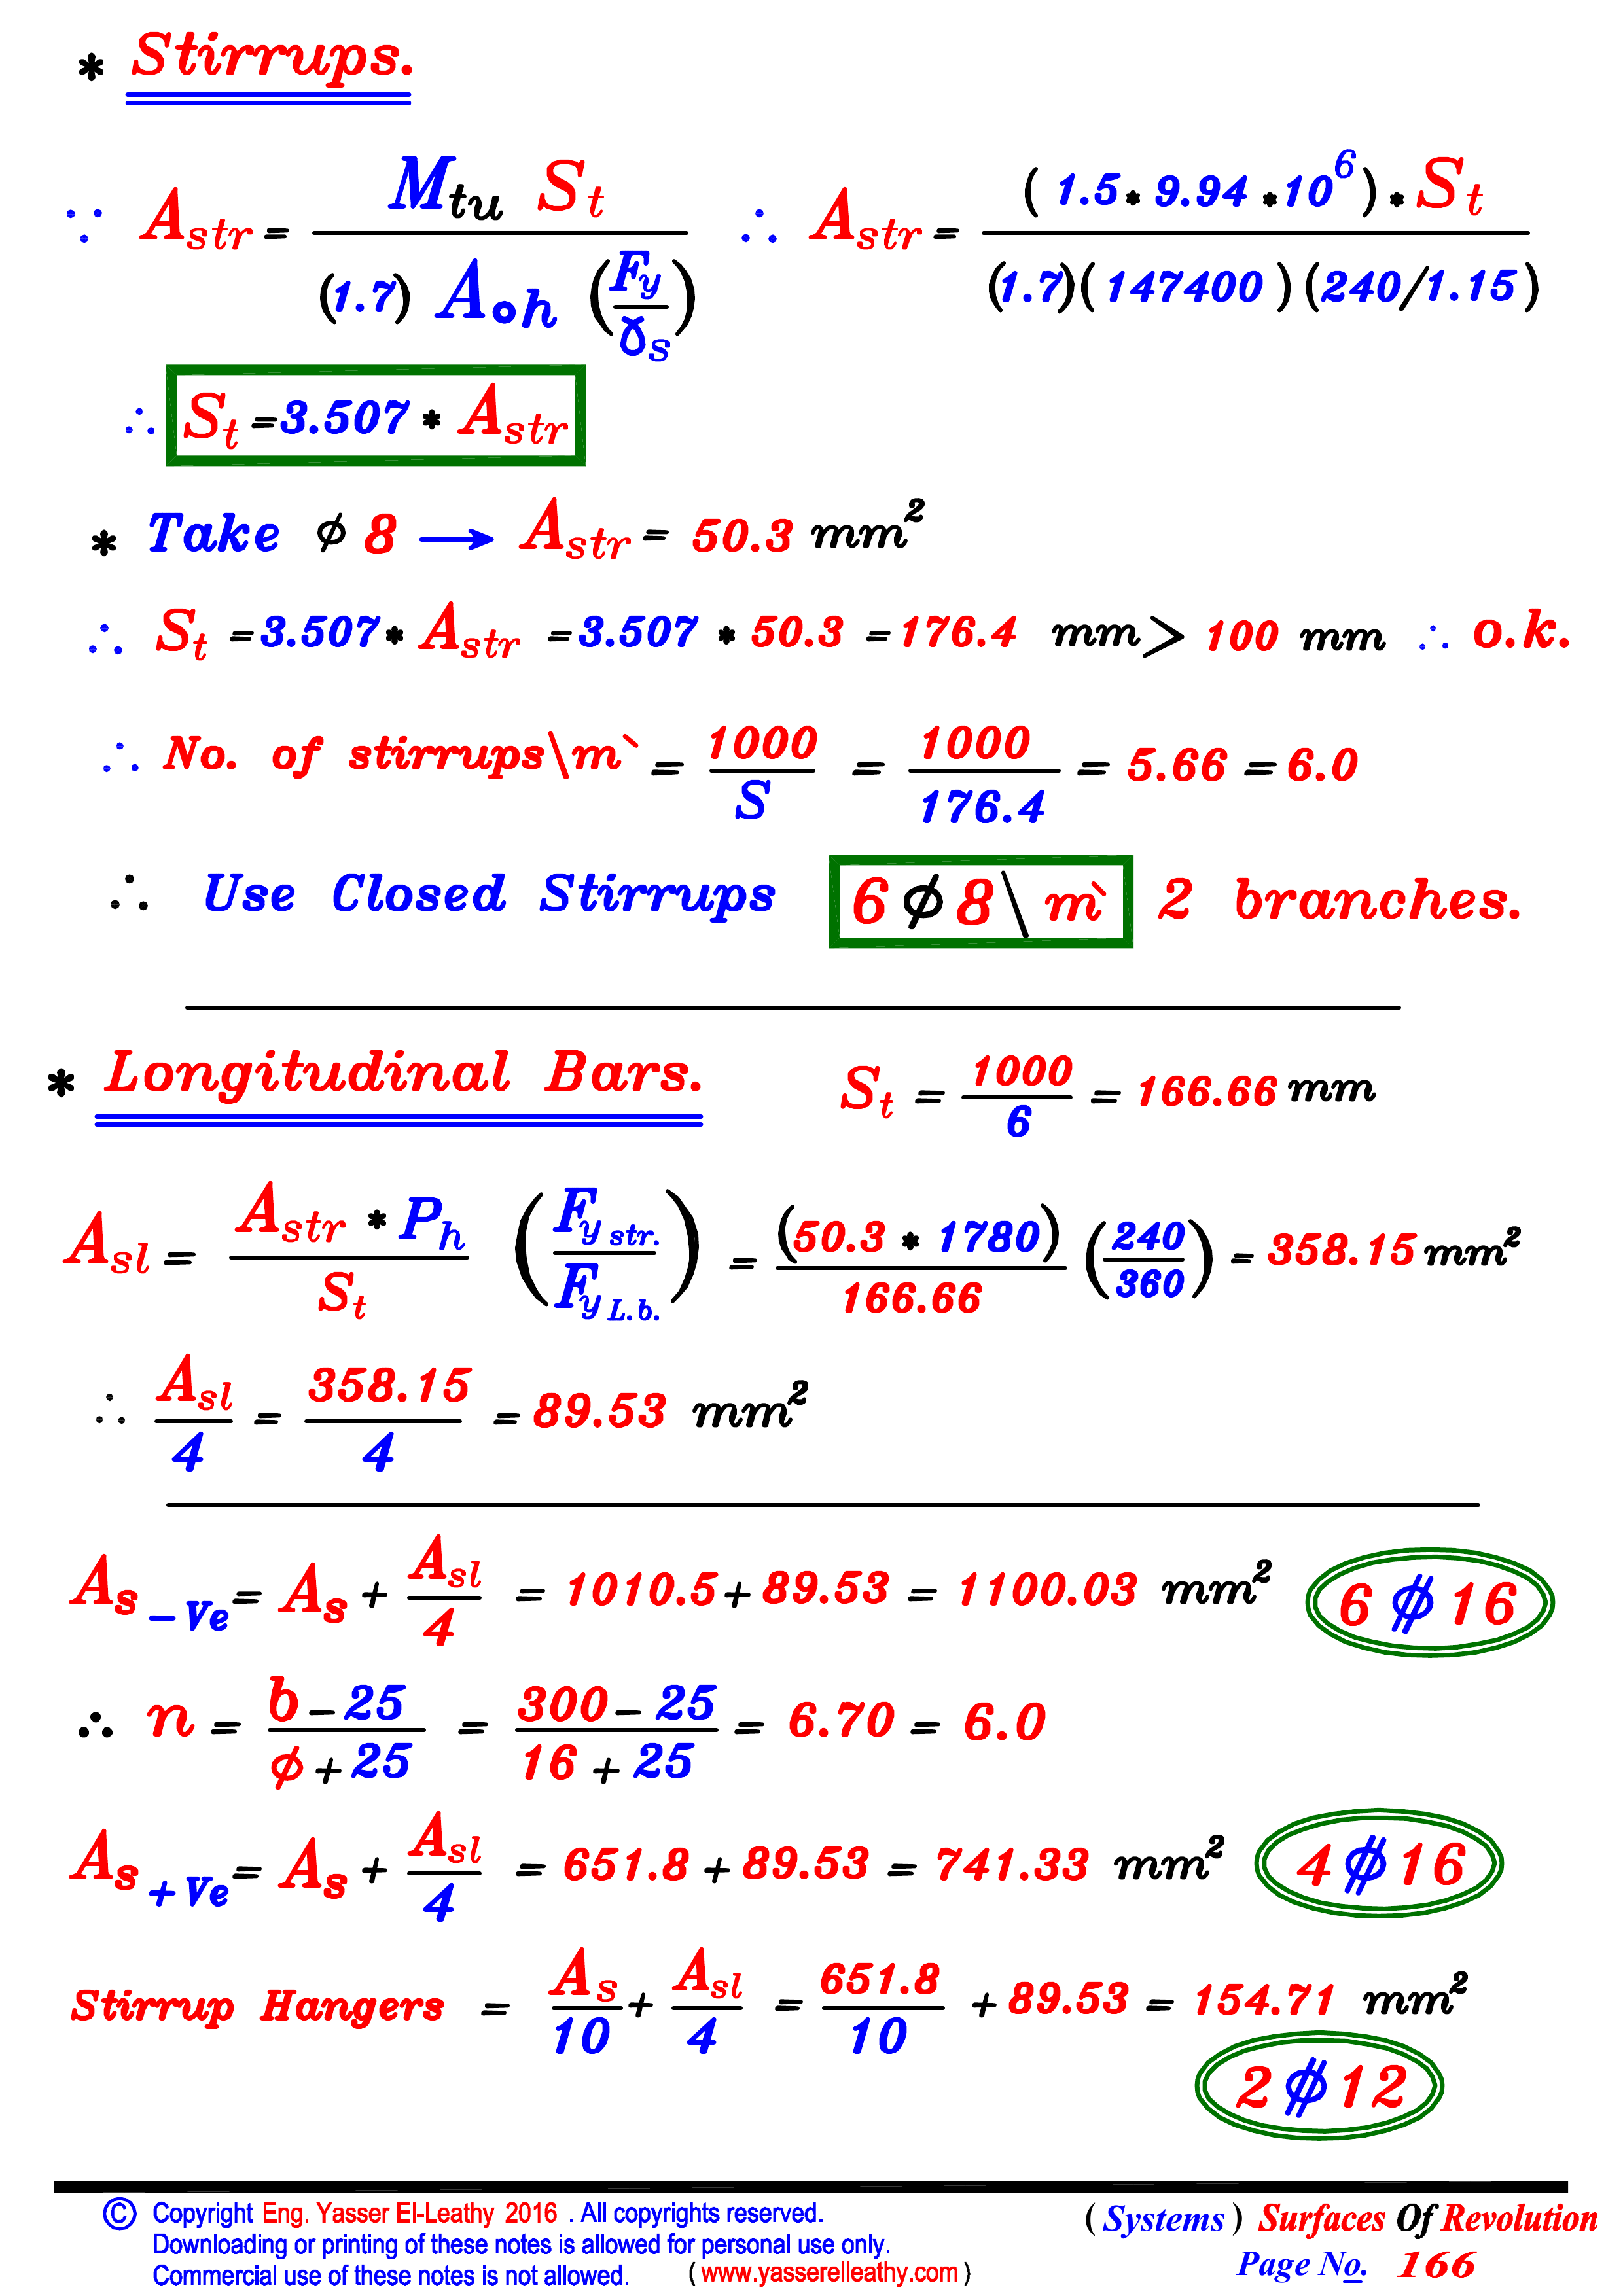 * Stirrups.
∵ A_str = M_tu S_t / (1.7) A_oh (F_y / γ_s) ∴ A_str = (1.5 * 9.94 * 10^6) * S_t / (1.7)(147400)(240/1.15)
∴ S_t = 3.507 * A_str
* Take ϕ 8 → A_str = 50.3 mm²
∴ S_t = 3.507 * A_str = 3.507 * 50.3 = 176.4 mm > 100 mm ∴ o.k.
∴ No. of stirrups\m` = 1000 / S = 1000 / 176.4 = 5.66 = 6.0
∴ Use Closed Stirrups 6 ϕ 8 \ m` 2 branches.
* Longitudinal Bars. S_t = 1000 / 6 = 166.66 mm
A_sl = A_str * P_h / S_t (F_y str. / F_y L.b.) = (50.3 * 1780) / 166.66 (240 / 360) = 358.15 mm²
∴ A_sl / 4 = 358.15 / 4 = 89.53 mm²
A_s -Ve = A_s + A_sl / 4 = 1010.5 + 89.53 = 1100.03 mm² 6 ⌽ 16
∴ n = b - 25 / ϕ + 25 = 300 - 25 / 16 + 25 = 6.70 = 6.0
A_s +Ve = A_s + A_sl / 4 = 651.8 + 89.53 = 741.33 mm² 4 ⌽ 16
Stirrup Hangers = A_s / 10 + A_sl / 4 = 651.8 / 10 + 89.53 = 154.71 mm²
2 ⌽ 12
© Copyright Eng. Yasser El-Leathy 2016 . All copyrights reserved.
Downloading or printing of these notes is allowed for personal use only.
Commercial use of these notes is not allowed. ( www.yasserelleathy.com )
( Systems ) Surfaces Of Revolution
Page No. 166